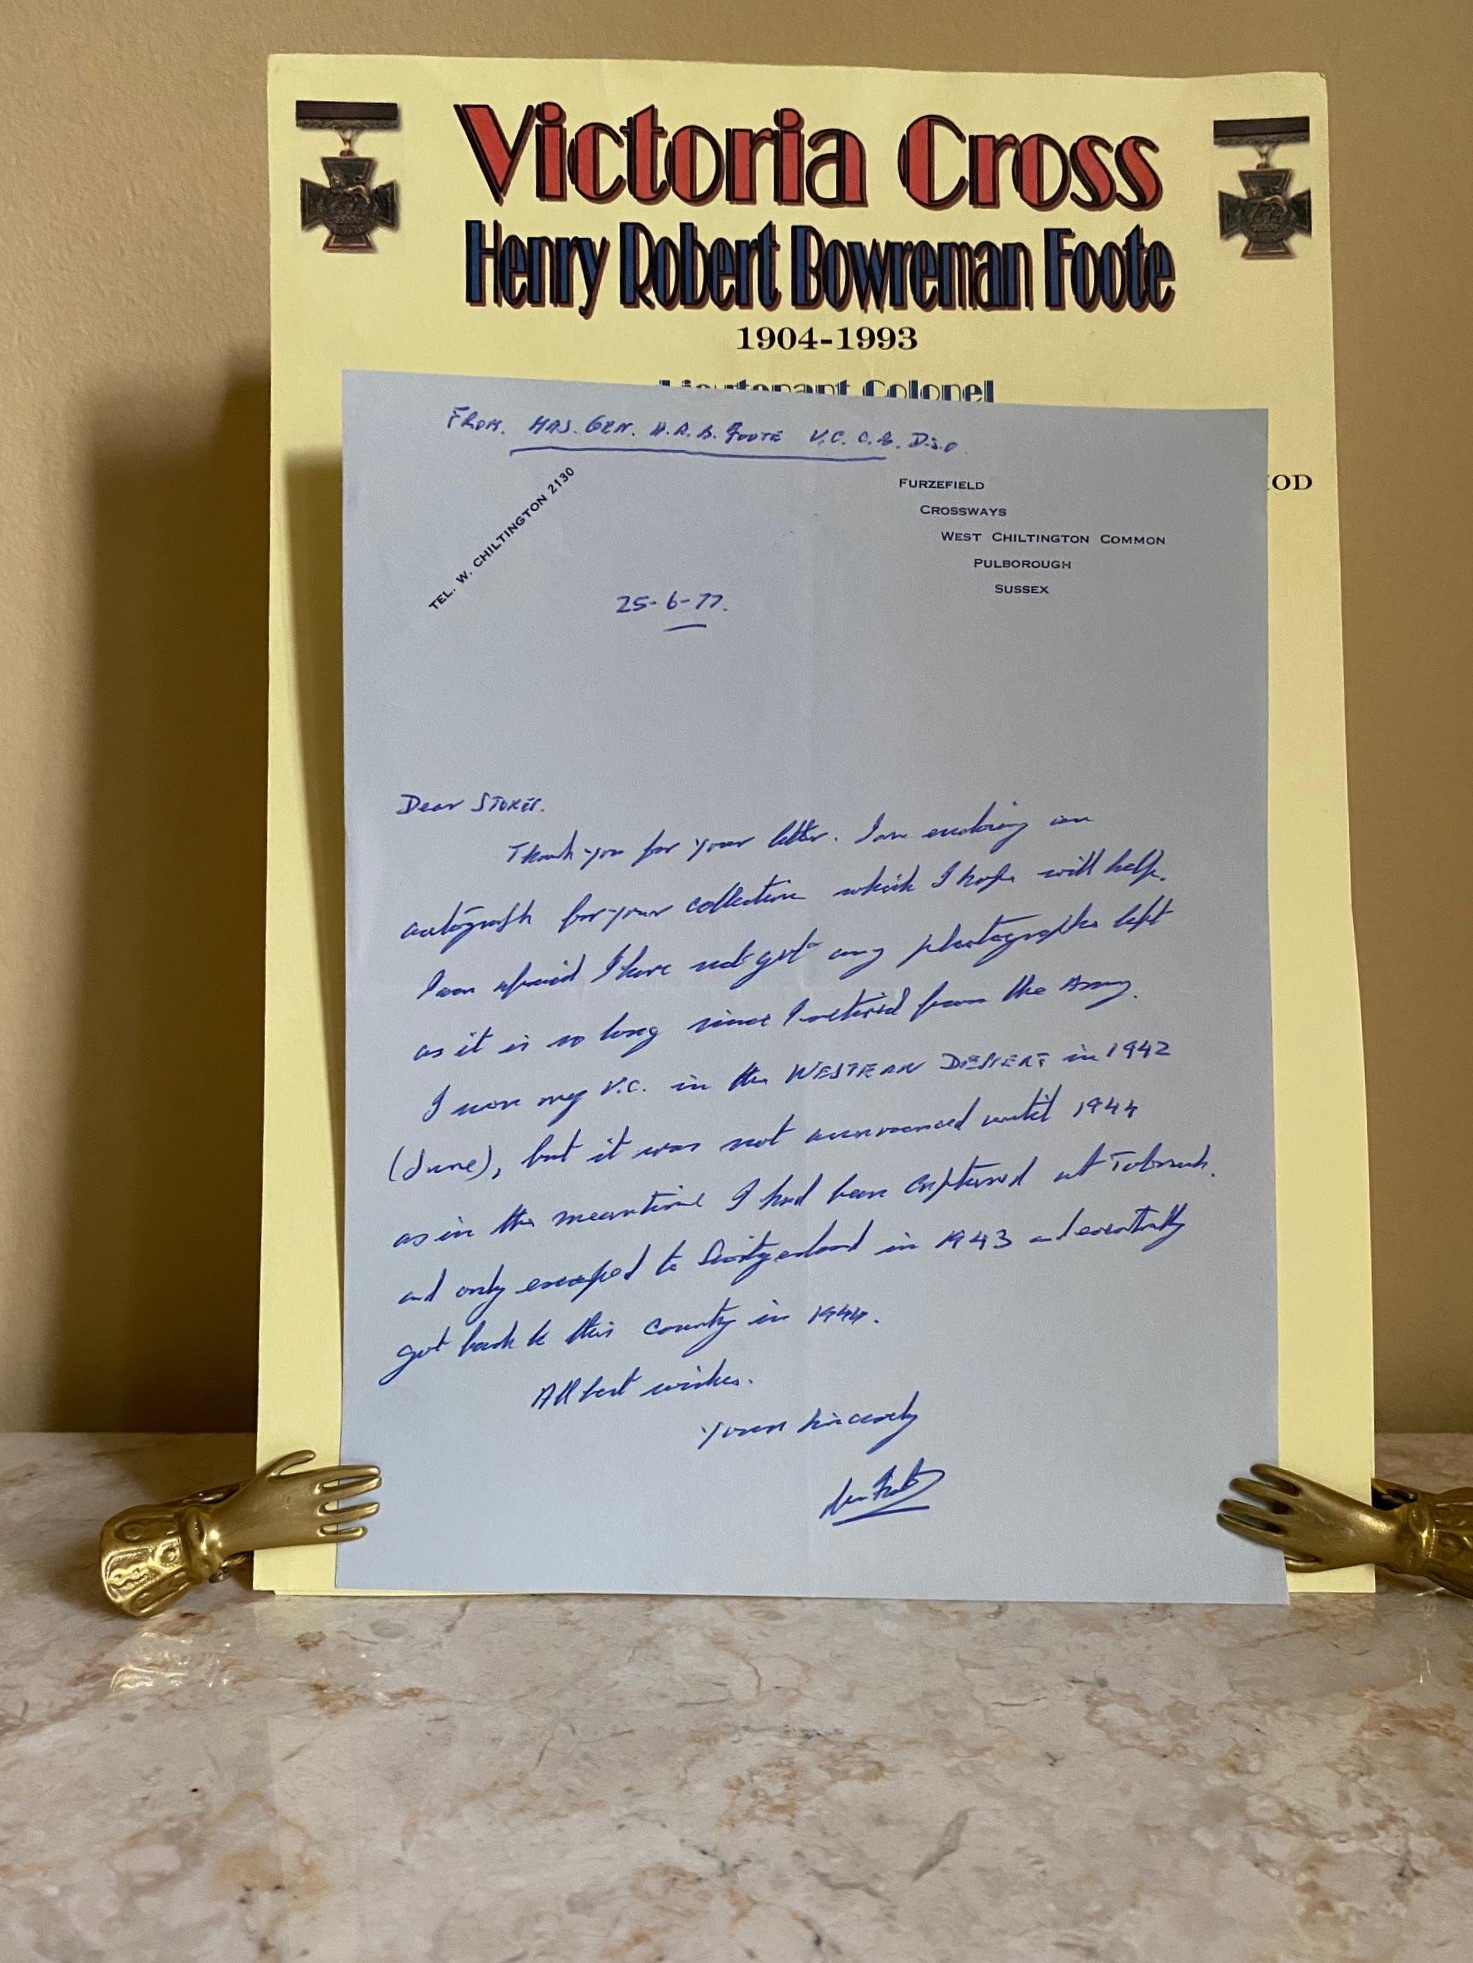 Victoria Cross
Henry Robert Bowreman Foote
1904-1993
Lieutenant Colonel
IOD
FROM. MAJ. GEN. H.R.B. FOOTE V.C. C.B. D.S.O
TEL. W. CHILTINGTON 2130
FURZEFIELD
CROSSWAYS
WEST CHILTINGTON COMMON
PULBOROUGH
SUSSEX
25-6-77.
Dear STOKES.
Thank you for your letter. I am enclosing an
autograph for your collection which I hope will help.
I am afraid I have not got any photographs left
as it is so long since I retired from the Army.
I won my V.C. in the WESTERN DESERT in 1942
(June), but it was not announced until 1944
as in the meantime I had been captured at Tobruk.
and only escaped to Switzerland in 1943 and eventually
got back to this country in 1944.
All best wishes.
Yours sincerely